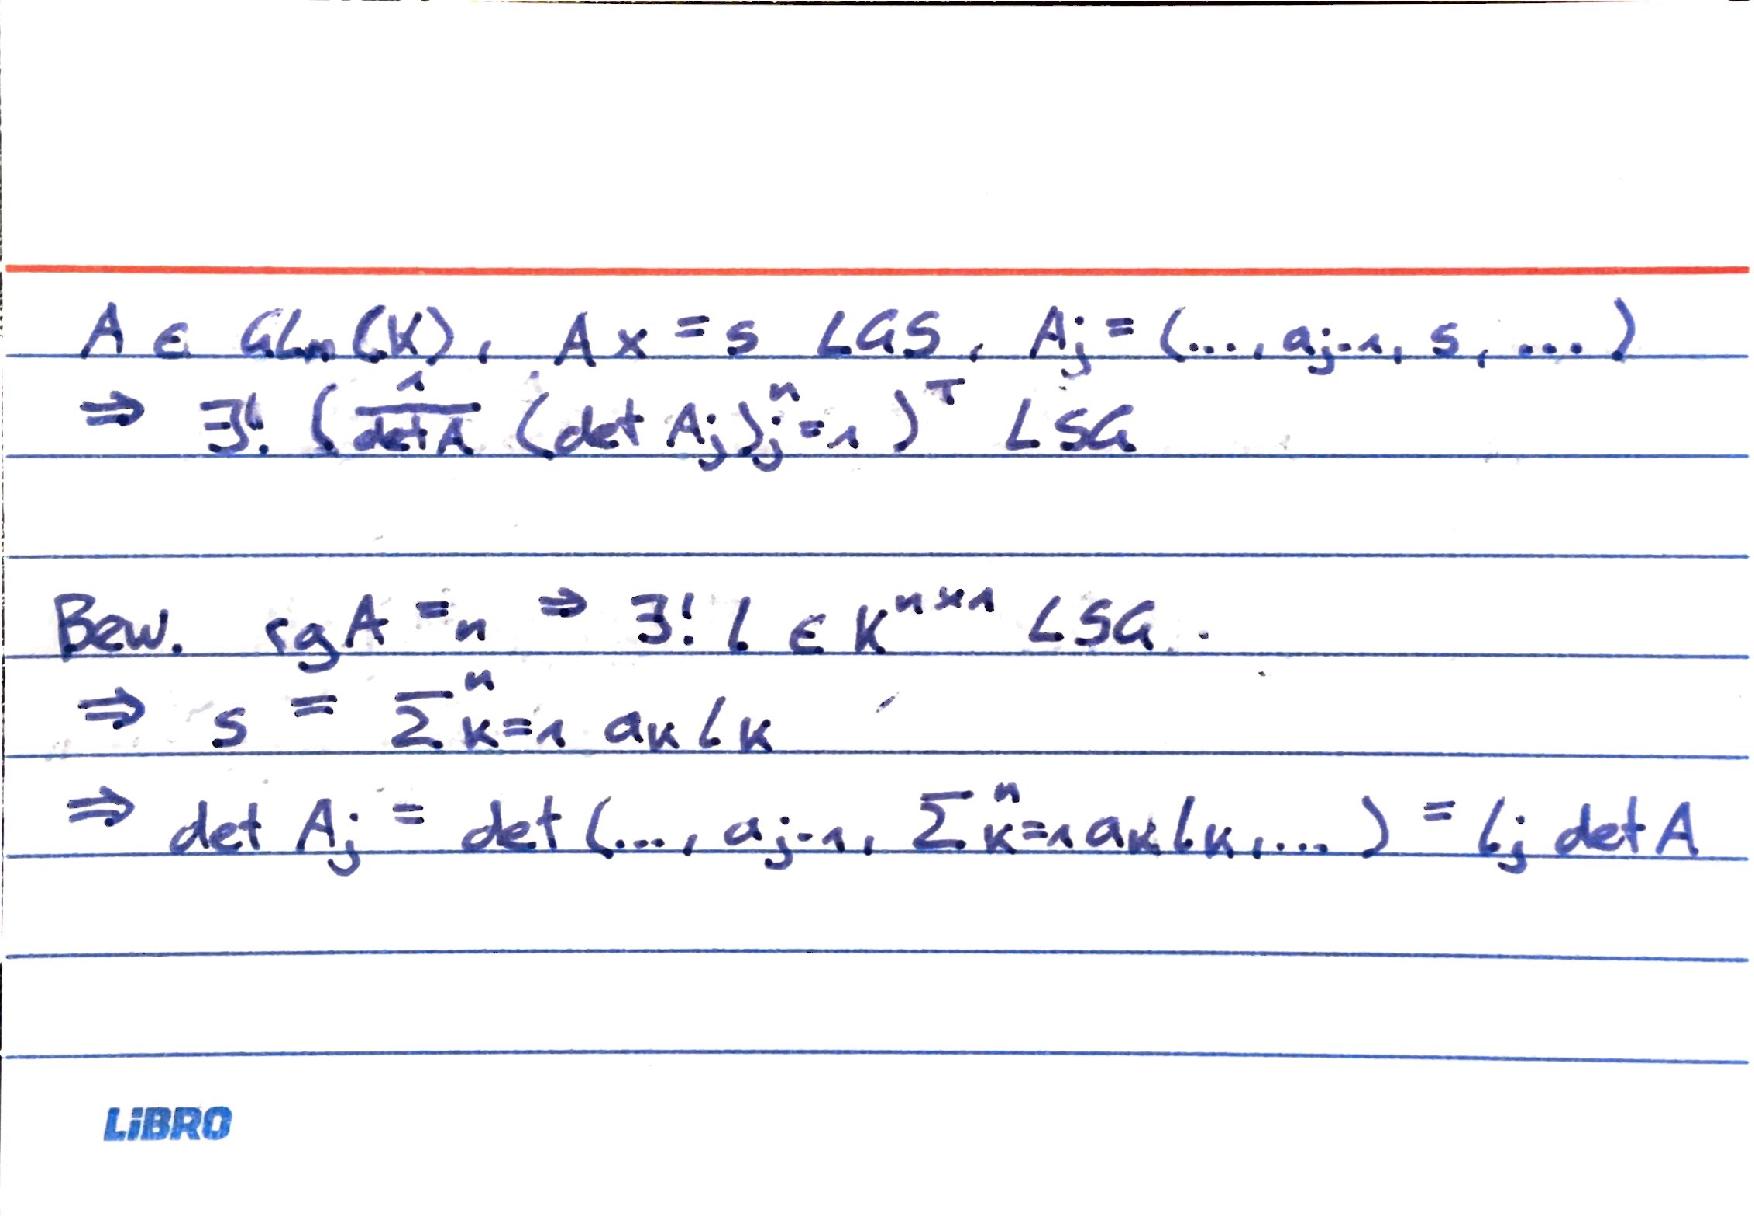 A ∈ GLn(K), Ax = s LGS, Aj = (..., aj-1, s, ...)
⇒ ∃! (1/detA (det Aj)j=1^n)^T LSG
Bew. rgA = n ⇒ ∃! l ∈ K^n×1 LSG.
⇒ s = Σ^n k=1 ak lk
⇒ det Aj = det(..., aj-1, Σ^n k=1 ak lk, ...) = lj detA
LiBRO